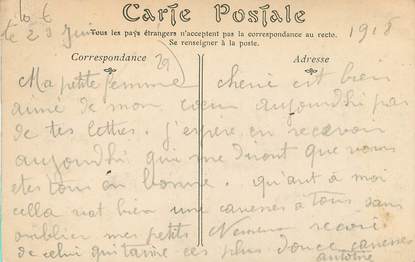 Carte Postale
Tous les pays étrangers n'acceptent pas la correspondance au recto.
Se renseigner à la poste.
1918
le 29 Juin
Correspondance
Adresse
(29)
Ma petite femme cheri est bien
aimé de mon cœur aujourdhui pas
de tes lettres. j'espère en recevoir
aujourdhi qui me diront que vous
etes tous en bonne. quant à moi
cella vat bien une caresses à tous sans
oublier mes petits Neveux recois
de celui qui t'aime ces plus douce caresses
antoine